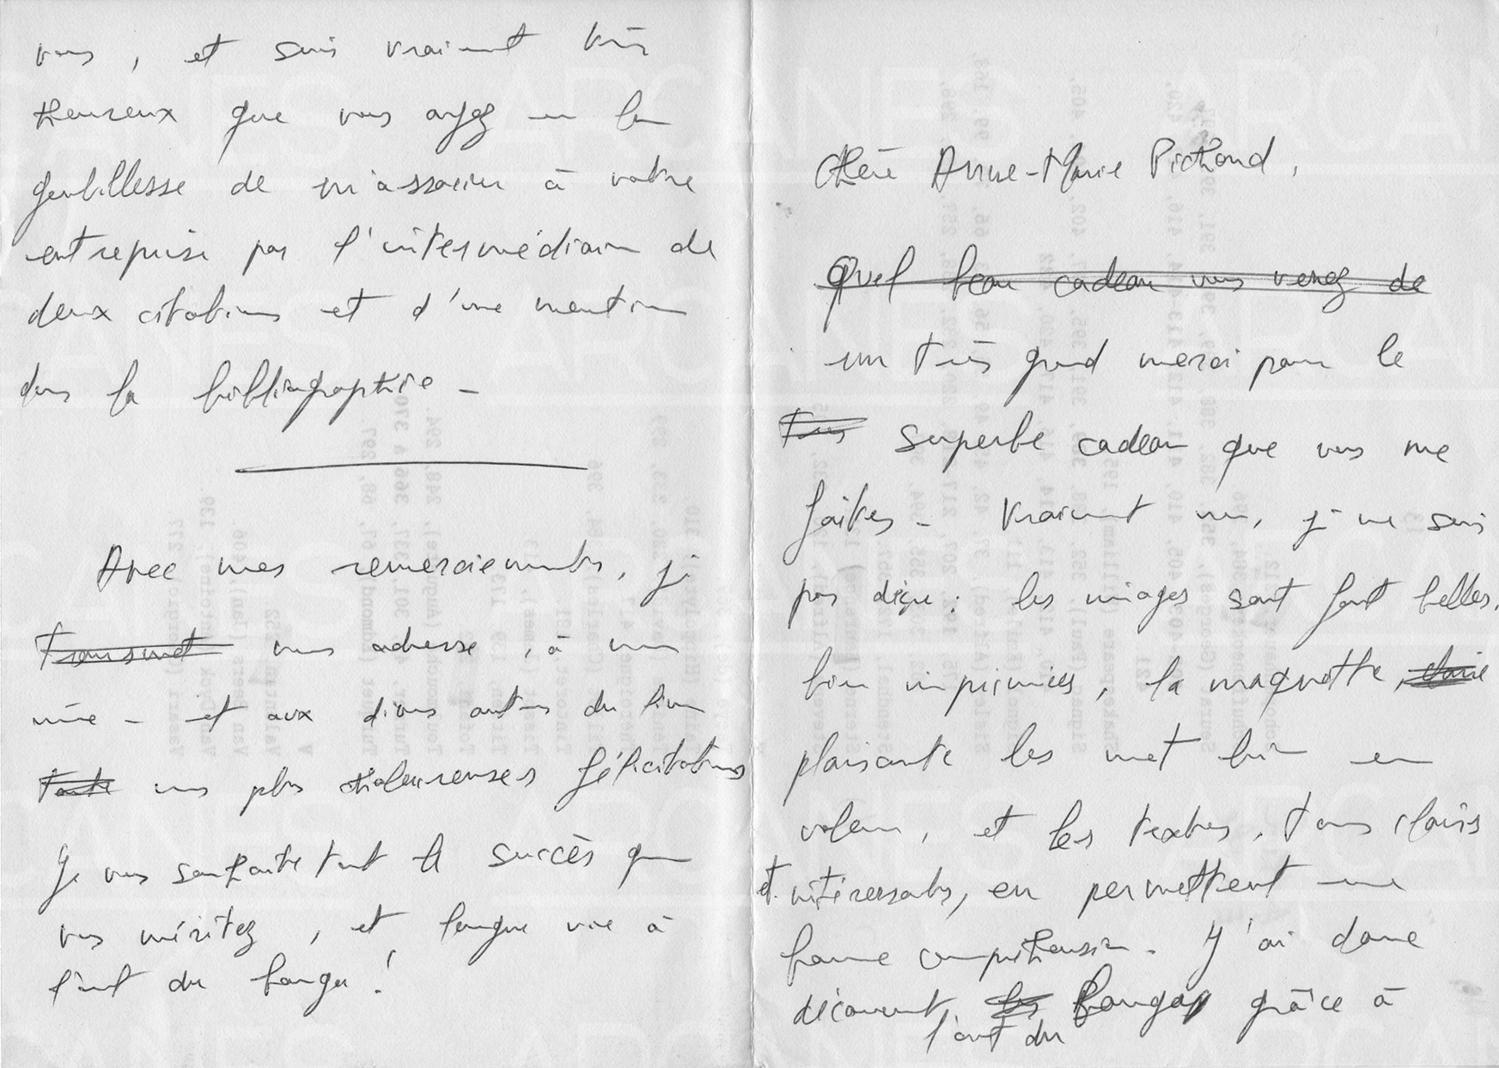 Chère Anne-Marie Pichard,
Quel beau cadeau vous venez de
un très grand merci pour le
superbe cadeau que vous me
faites - Vraiment oui, je ne suis
pas déçu : les images sont fort belles,
bien imprimées, la maquette,
plaisante les met bien en
valeur, et les textes, tous clairs
et intéressants, en permettent une
bonne compréhension. J'ai donc
découvert l'art du banga grâce à
vous, et suis vraiment très
heureux que vous ayez eu la
gentillesse de m'associer à votre
entreprise par l'intermédiaire de
deux citations et d'une mention
dans la bibliographie -
Avec mes remerciements, je
transmet vous adresse, à vous
même - et aux divers auteurs du livre
toute mes plus chaleureuses félicitations
Je vous souhaite tout le succès que
vous méritez, et longue vie à
l'art du banga !